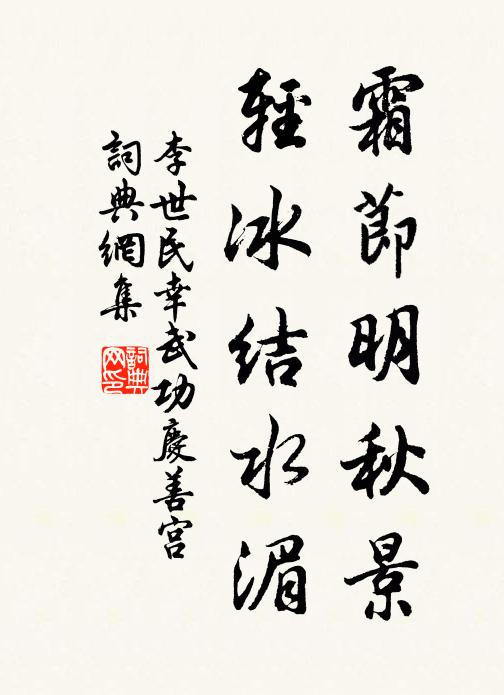 霜節明秋景
輕冰結水湄
李世民幸武功慶善宮
詞典網集
詞典
网印